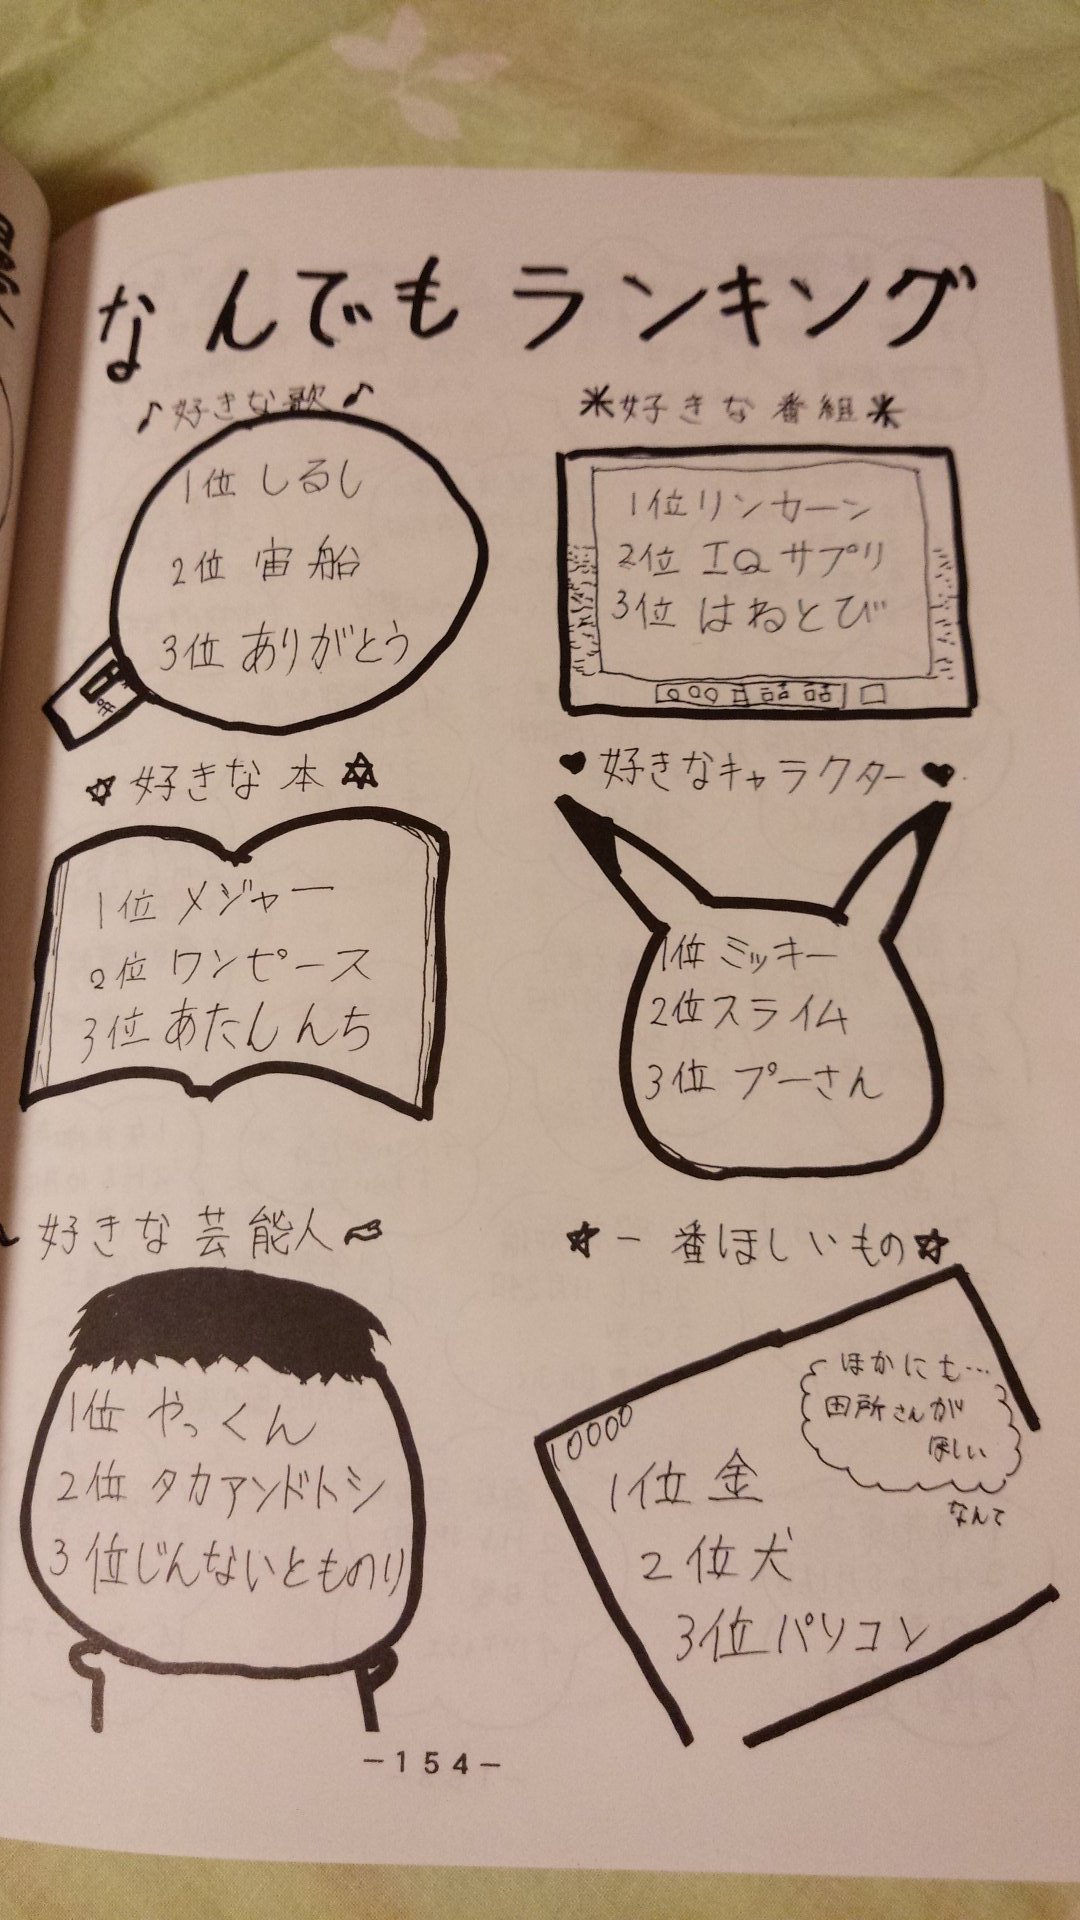 なんでもランキング
♪好きな歌♪
1位 しるし
2位 宙船
3位 ありがとう
好きな番組
1位リンカーン
2位 IQサプリ
3位 はねとび
好きな本
1位 メジャー
2位 ワンピース
3位 あたしんち
好きなキャラクター
1位 ミッキー
2位スライム
3位 プーさん
好きな芸能人
1位 やっくん
2位 タカアンドトシ
3位じんないとものり
一番ほしいもの
ほかにも…
田所さんが
ほしい
なんて
10000
1位 金
2位 犬
3位パソコン
-154-